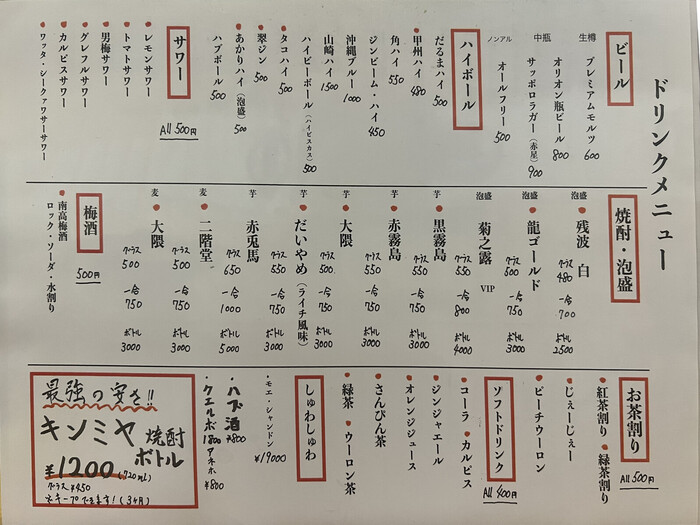 ドリンクメニュー
ビール
生樽
プレミアムモルツ 600
オリオン瓶ビール 800
中瓶
サッポロラガー(赤星) 900
ノンアル
オールフリー 500
ハイボール
だるまハイ 500
甲州ハイ 480
角ハイ 550
ジンビーム・ハイ 450
沖縄ブルー 1000
山崎ハイ 1500
ハイビーボール(ハイビスカス) 500
タコハイ 500
翠ジン 500
あかりハイ(泡盛) 500
ハブボール 500
サワー
All 500円
レモンサワー
トマトサワー
男梅サワー
グレフルサワー
カルピスサワー
ワッタ・シークァワーサーサワー
焼酎・泡盛
泡盛 残波 白
グラス 480 一合 700 ボトル 2500
泡盛 龍ゴールド
グラス 500 一合 750 ボトル 3000
泡盛 菊之露 VIP
グラス 550 一合 800 ボトル 4000
芋 黒霧島
グラス 550 一合 750 ボトル 3000
芋 赤霧島
グラス 550 一合 750 ボトル 3000
芋 大隈
グラス 500 一合 750 ボトル 3000
芋 だいやめ(ライチ風味)
グラス 550 一合 750 ボトル 3000
芋 赤兎馬
グラス 650 一合 1000 ボトル 5000
麦 二階堂
グラス 500 一合 750 ボトル 3000
麦 大隈
グラス 500 一合 750 ボトル 3000
梅酒
500円
南高梅酒
ロック・ソーダ・水割り
お茶割り
All 500円
紅茶割り・緑茶割り
じぇーじぇー
ピーチウーロン
ソフトドリンク
All 400円
コーラ・カルピス
ジンジャエール
オレンジジュース
さんぴん茶
緑茶・ウーロン茶
しゅわしゅわ
・モエ・シャンドン ¥19000
・ハブ酒 ¥800
・クエルボ 1800 アネホ ¥800
最強の安さ!!
キンミヤ焼酎
ボトル
¥1200(720mL)
グラス ¥450
※キープできます!(3ヶ月)